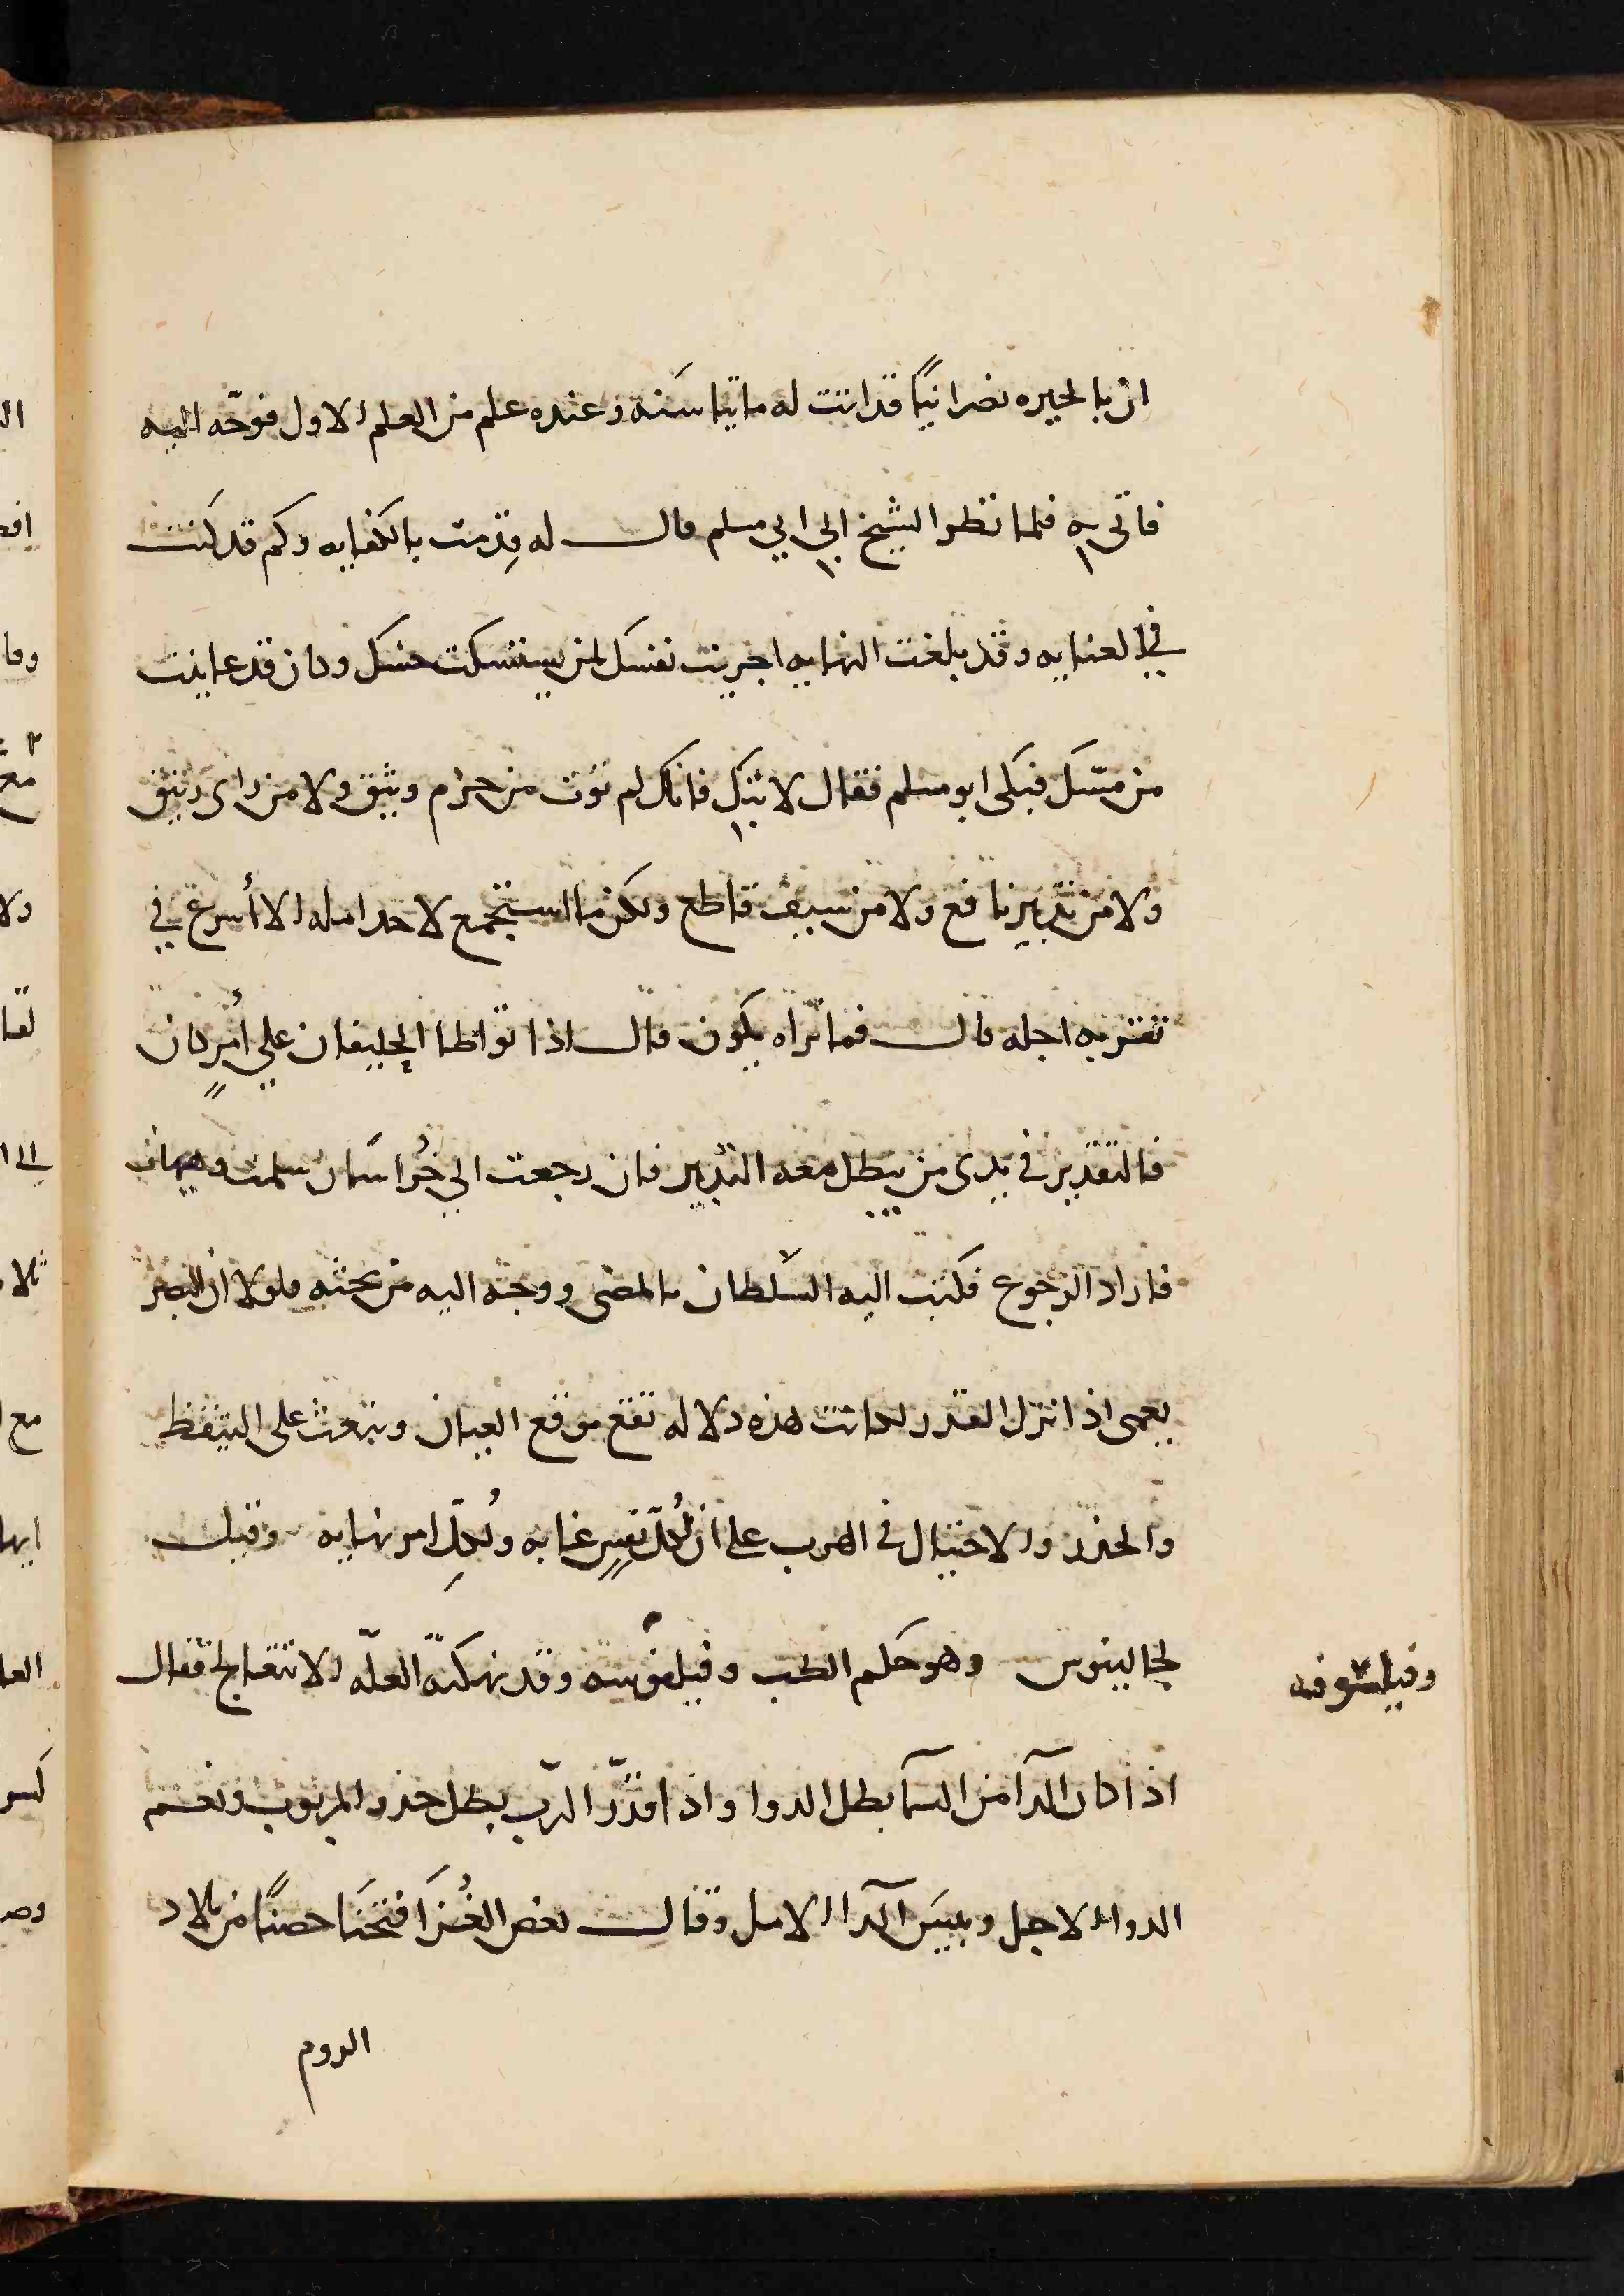 ان بالحيره نصرانيًا قد اتت له مايتا سَنه وعنده علم من العلم الاول فوجّه اليه
فاتى به فلما نظر الشيخ الي ابي مسلم قال له قدِمتَ بالكفايه وكم قد كنت
في العنايه وقد بلغت النهايه اجريت نفسك لمن يستنسكت حسك وكان قد عاينت
من مسّك فبكى ابو مسلم فقال لا تبك فانك لم توت من حزم وثيق ولا من راى رتيق
ولا من تدبير نافع ولا من سيف قاطع ولكن ما استجمع لاحد امله الا أسرع في
تقتريه اجله قال فما تراه يكون قال اذا تواطا الخليفان علي أمرٍ كان
فالتقدير في يدى من يبطل معه التدبير فان رجعت الي خُراسَان سلمت وهيهات
فاراد الرجوع فكتب اليه السلطان بالمضى ووجه اليه من يحثه ولولا ان البصر
يعمى اذا نزل القدر لكانت هذه دلاله تقع موقع العيان وتبعث على التيقظ
والحذر والاحتيال في الهرب على ان لكُلّ نفسٍ غايه ولكُلِّ امر نهايه وقيل
لجالينوس وهو حكم الطب وفيلفوسه وقد نهكتهّ العلّه الا تتعالج فقال
وفيلسوفه
اذا كان الدآ من السمآ بطل الدوا واذا قدّر الربّ بطل حذر المربوب ونعم
الدوا الاجل وبيسَ الدآ الامل وقال بعض الغُزَا فتحَنا حصنًا من بلاد
الروم